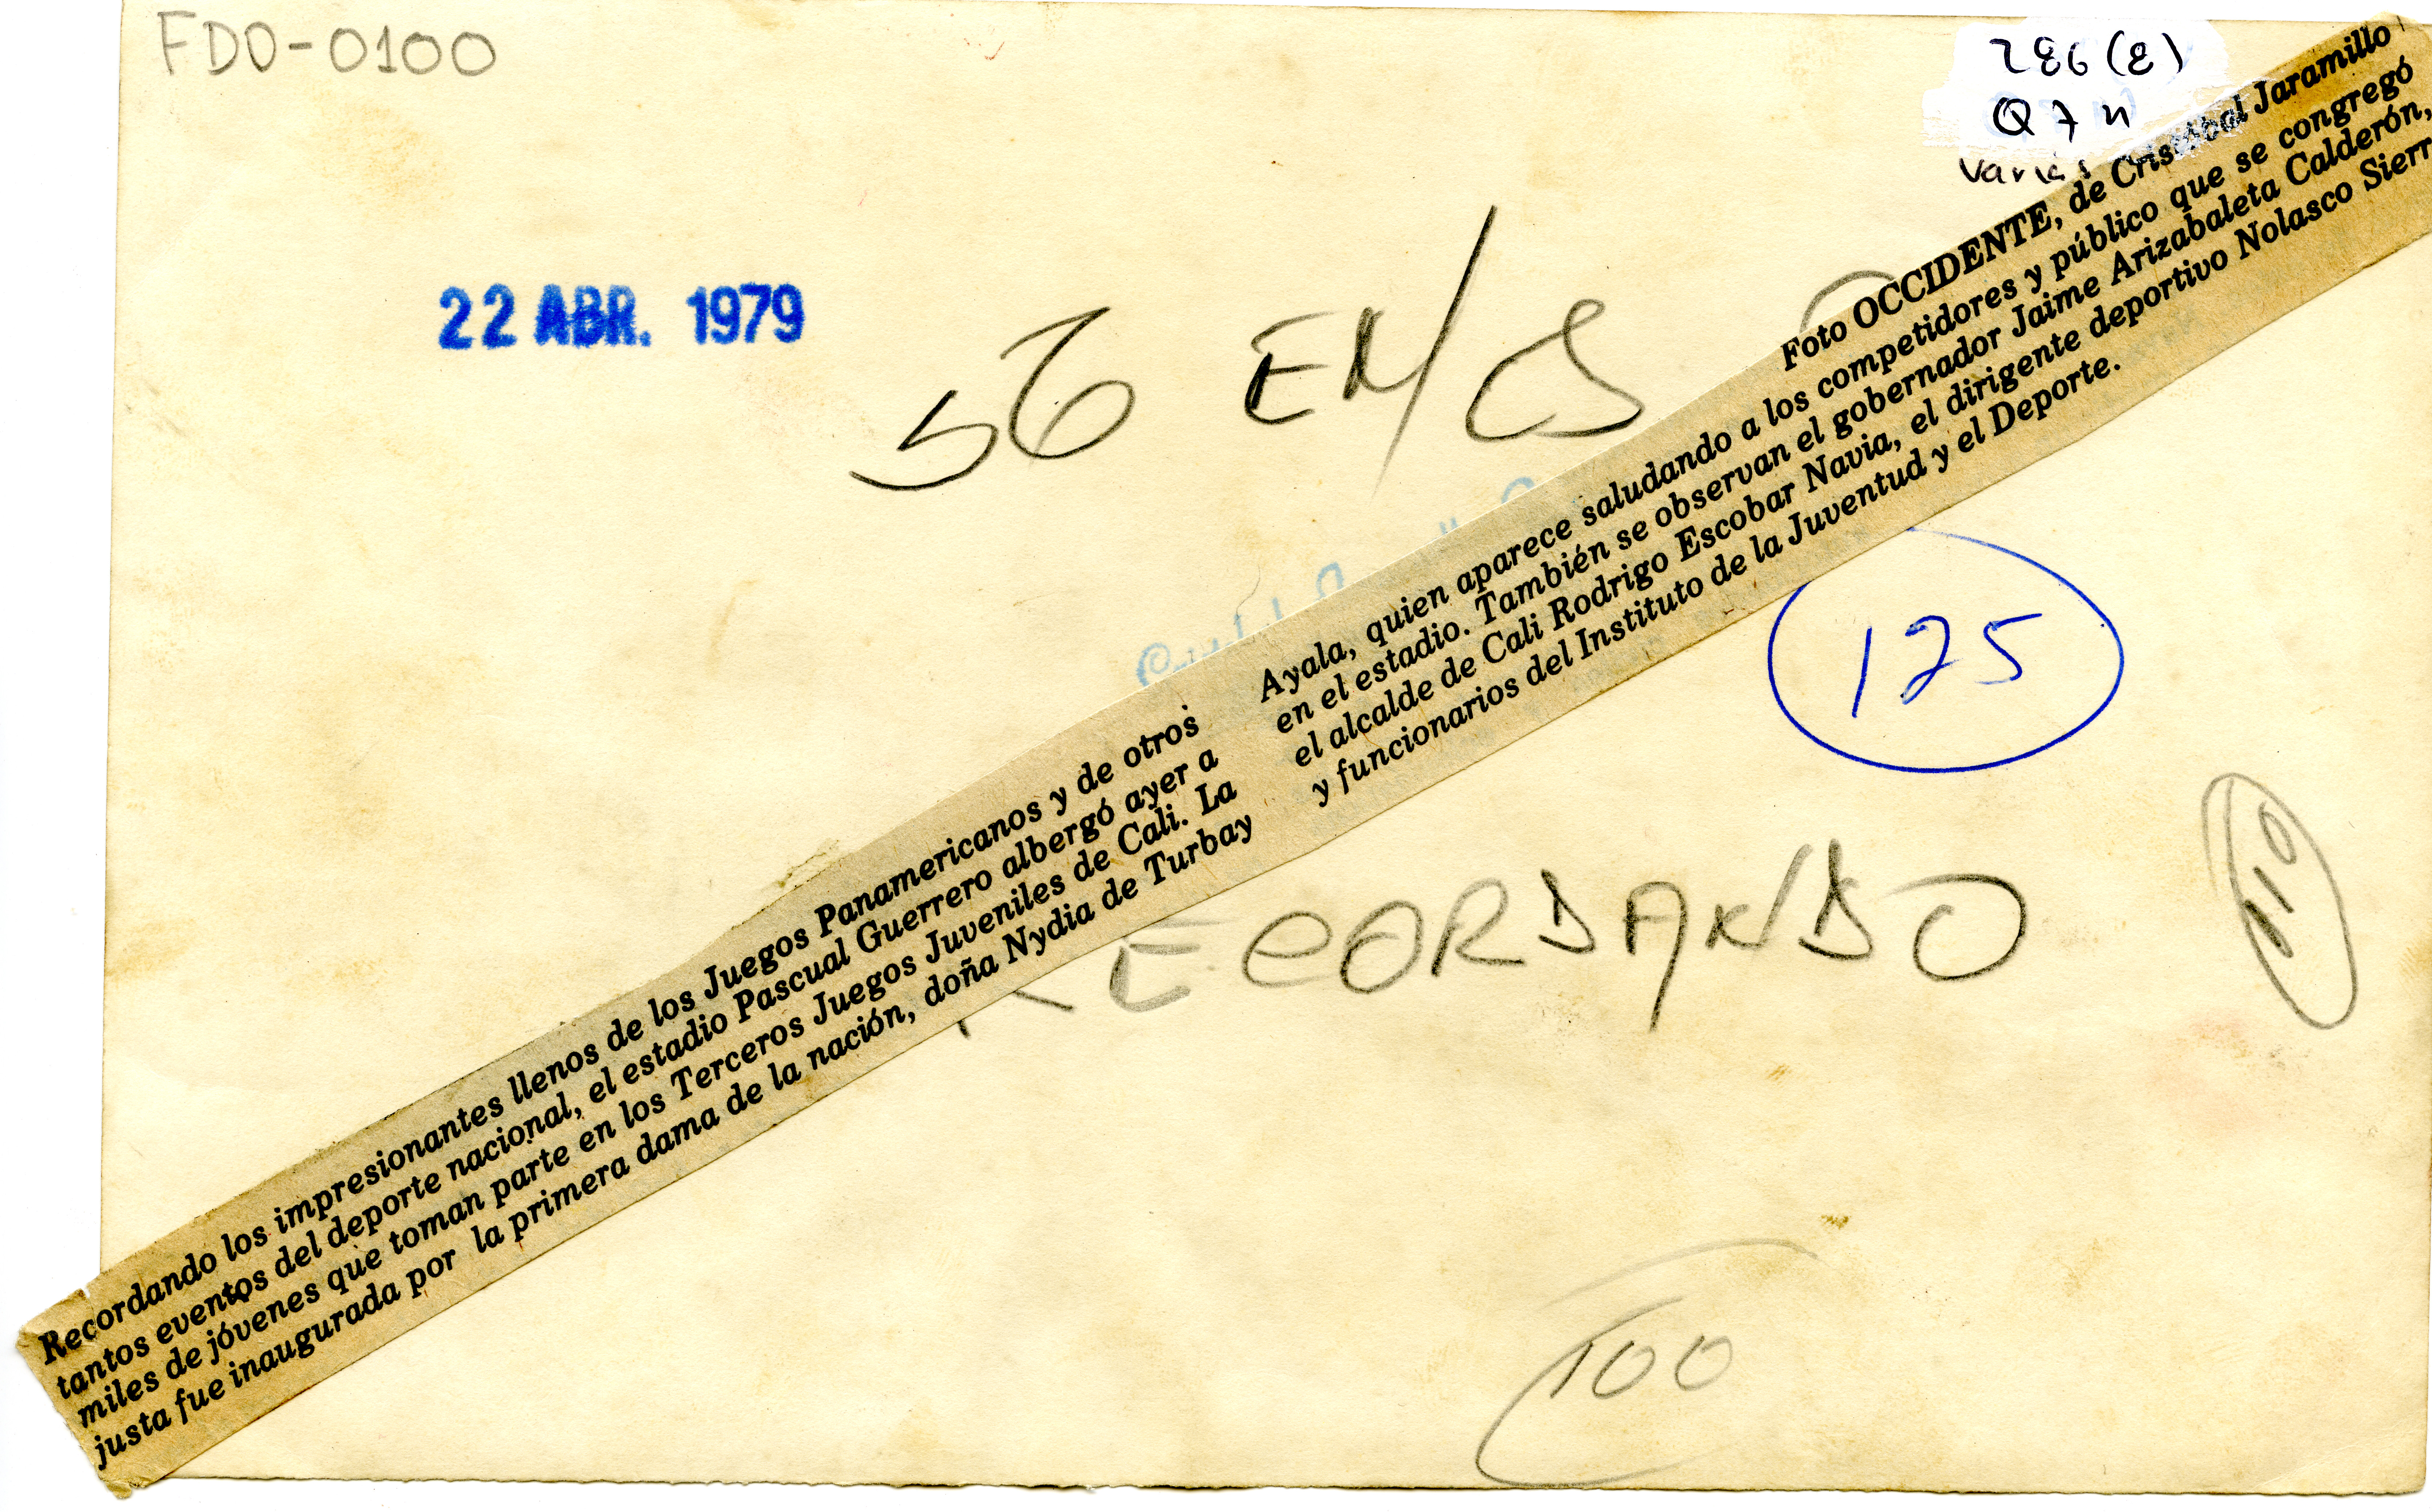 FDO-0100
286(8)
Q7n
varias
22 ABR. 1979
56 EM/CS
Foto OCCIDENTE, de Cristóbal Jaramillo
Recordando los impresionantes llenos de los Juegos Panamericanos y de otros
tantos eventos del deporte nacional, el estadio Pascual Guerrero albergó ayer a
miles de jóvenes que toman parte en los Terceros Juegos Juveniles de Cali. La
justa fue inaugurada por la primera dama de la nación, doña Nydia de Turbay
Ayala, quien aparece saludando a los competidores y público que se congregó
en el estadio. También se observan el gobernador Jaime Arizabaleta Calderón,
el alcalde de Cali Rodrigo Escobar Navia, el dirigente deportivo Nolasco Sierr
y funcionarios del Instituto de la Juventud y el Deporte.
175
RECORDANDO
110
100